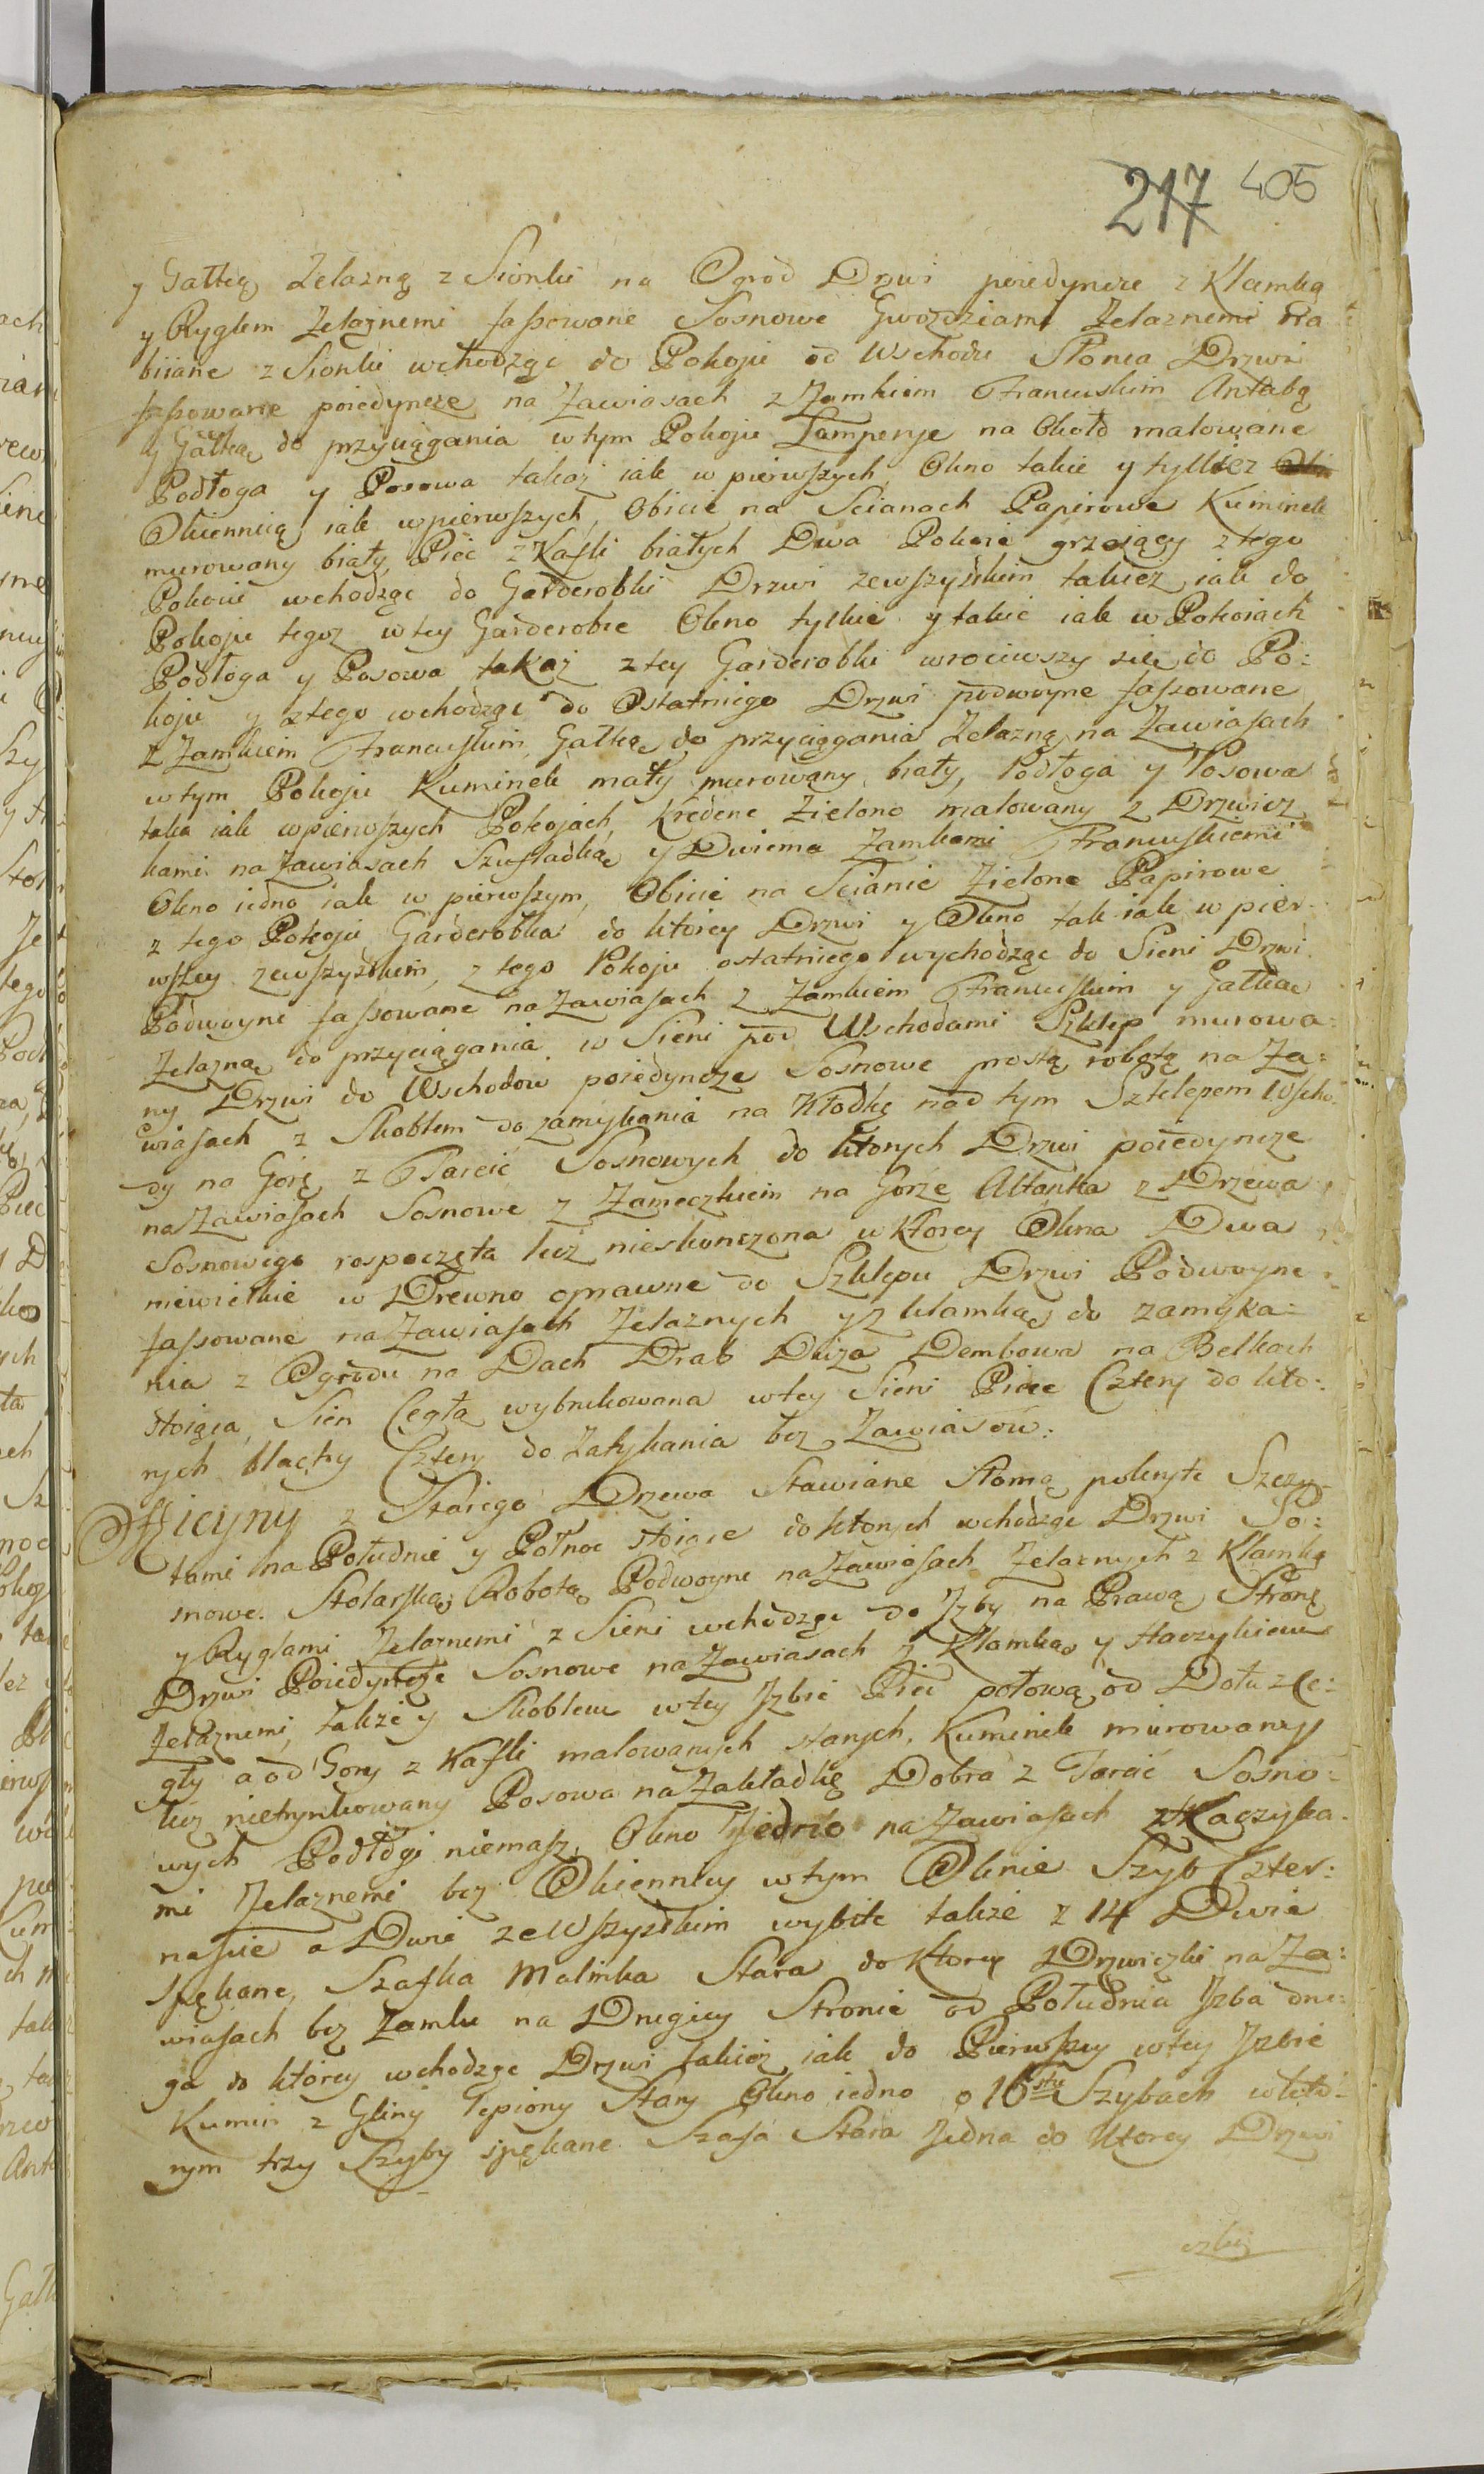 217 405
y Gałką Zelazną z Sionki na Ogrod Drzwi poiedyncze z Klamką
y Ryglem Zelaznemi fassowane Sosnowe Gwozdziami Zelaznemi na
biiane z Sionki wchodząc do Pokoju od Wschodu Słonca Drzwi
fassowane poiedyncze na Zawiasach z Zamkiem Francuskim Antabą
y Gałką do przyciągania w tym Pokoju Lamperye na Około malowane
Podłoga y Posowa takaż iak w pierwszych, Okno takie y tylkież
Okiennicą iak w pierwszych, Obicie na Scianach Papirowe Kuminek
murowany biały, Piec z Kafli białych Dwa Pokoie grzeiący z tego
Pokoiu wchodząc do Garderobki Drzwi zewszyskim takież iak do
Pokoju tegoz w tey Garderobie Okno tylkie y takie iak w Pokoiach
Podłoga y Posowa takaż z tey Garderobki wrociwszy się do Po:
koju y z tego wchodząc do Ostatniego Drzwi podwoyne fassowane
z Zamkiem Francuskim, Gałką do przyciągania Zelazną na Zawiasach
w tym Pokoju Kuminek mały murowany biały, Podłoga y Posowa
taka iak w pierwszych Pokojach, Kredenc Zielono malowany z Drzwicz
kami na Zawiasach Szufladką y Dwiema Zamkami Francuskiemi
Okno iedno iak w pierwszym, Obicie na Scianie Zielone Papirowe
z tego Pokoju Garderobka do ktorey Drzwi y Okno tak iak w pier
wszey zewszyskim, z tego Pokoju ostatniego wychodząc do Sieni Drzwi
Podwoyne fassowane na Zawiasach z Zamkiem Francuskim y Gałką
Zelazną do przyciągania w Sieni pod Wschodami Szklep murowa:
ny Drzwi do Wschodow poiedyncze Sosnowe prostą robotą na Za:
wiasach z Skoblem do zamykania na Kłodkę nad tym Szklepem Wscho
dy na Gorę z Tarcic Sosnowych do ktorych Drzwi poiedyncze
na Zawiasach Sosnowe z Zameczkiem na Gorze Altanka z Drzewa
Sosnowego rospoczęta lecz nieskonczona w ktorey Okna Dwa
niewielkie w Drewno oprawne do Szklepu Drzwi Podwoyne
fassowane na Zawiasach Zelaznych y z klamką do zamyka:
nia z Ogrodu na Dach Drab Duża Dembowa na Belkach
stoiąca, Sien Cegłą wybrukowana w tey Sieni Piece Cztery do kto:
rych blachy Cztery do Zatykania bez Zawiasow:
Officyny z Starego Drzewa Stawiane Słomą pokryte Szczy
tami na Południe y Połnoc stoiące do ktorych wchodząc Drzwi So:
snowe Stolarską Robotą Podwoyne na Zawiasach Zelaznych z Klamką
y Ryglami Zelaznemi z Sieni wchodząc do Jzby na Prawą Stronę
Drzwi Poiedyncze Sosnowe na Zawiasach z Klamką y Haczykiem
Zelaznemi, takze y Skoblem w tey Jzbie Piec połową od Dołu z Ce:
gły a od Gory z Kafli malowanych starych, Kuminek murowany
lecz nietynkowany Posowa na Zakładkę Dobra z Tarcic Sosno:
wych Podłogi niemasz, Okno Jedno na Zawiasach z Haczyka
mi Zelaznemi bez Okiennicy w tym Oknie Szyb Czter:
nascie a Dwie ze Wszyskim wybite takze z 14 Dwie
spękane, Szafka Malinka Stara do ktorey Drzwiczki na Za:
wiasach bez Zamku na Drugiey Stronie od Południa Jzba dru:
ga do ktorey wchodząc Drzwi takież iak do Pierwszey w tey Jzbie
Kumin z Gliny lepiony Stary Okno iedno o 16stu Szybach w kto:
rym trzy Szyby spękane Szafa Stara Jedna do ktorey Drzwi